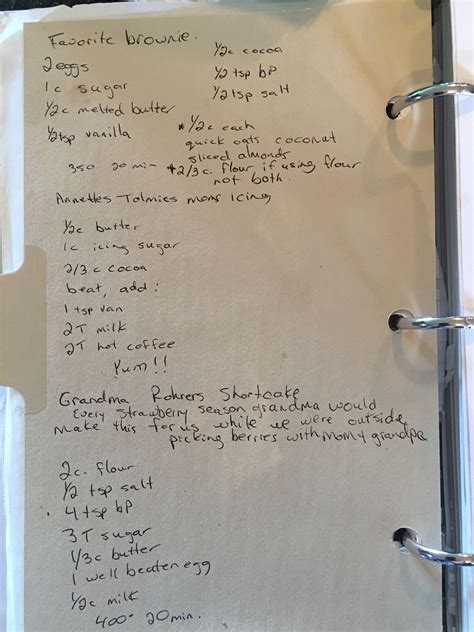 Favorite brownie.
2 eggs
1c sugar
1/2c melted butter
1/2tsp vanilla
350 20 min
1/2c cocoa
1/2 tsp bP
1/2 tsp salt
*1/2c each
quick oats coconut
sliced almonds
*2/3c. flour if using flour
not both.
Annettes Tolmies moms Icing
1/2c butter
1c icing sugar
2/3c cocoa
beat, add:
1 tsp van
2T milk
2T hot coffee
Yum!!
Grandma Rohrers Shortcake
Every strawberry season grandma would
make this for us while we were outside
picking berries with mom & grandpa
2c. flour
1/2 tsp salt
4 tsp bP
3T sugar
1/3c butter
1 well beaten egg
1/2c milk
400° 20min.